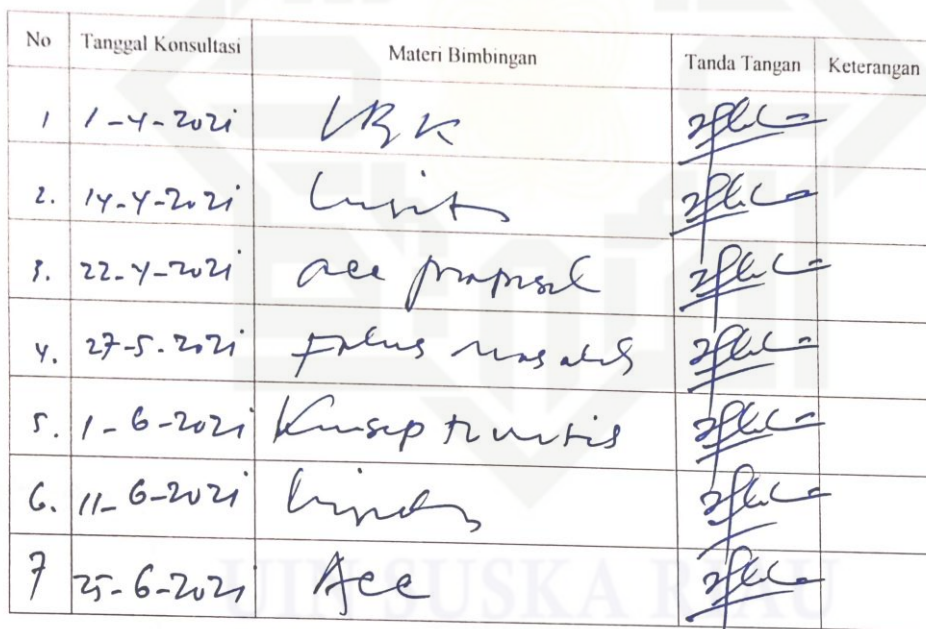 No Tanggal Konsultasi Materi Bimbingan Tanda Tangan Keterangan
1 1-4-2021 LBK
2. 14-4-2021
3. 22-4-2021 acc proposal
4. 27-5-2021 Fokus masalah
5. 1-6-2021 Konsep teoritis
6. 11-6-2021
7 25-6-2021 Acc
UIN SUSKA RIAU